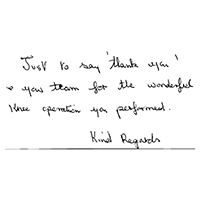 Just to say 'thank you'
& your team for the wonderful
knee operation you performed.
Kind Regards